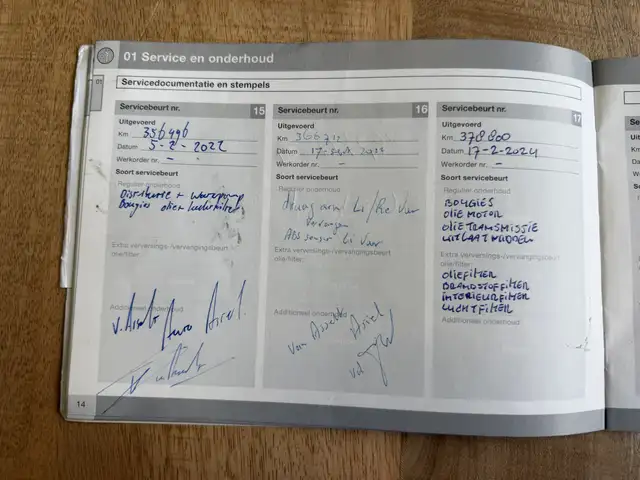 01 Service en onderhoud
01
Servicedocumentatie en stempels
Servicebeurt nr. 15
Uitgevoerd
Km 356496
Datum 5-2-2022
Werkorder nr. -
Soort servicebeurt
Regulier onderhoud
Distributie + waterpomp
Bougies olie+luchtfilter
Extra verversings-/vervangingsbeurt
olie/filter:
Additioneel onderhoud:
14
Servicebeurt nr. 16
Uitgevoerd
Km
Datum
Werkorder nr. -
Soort servicebeurt
Regulier onderhoud
draagarm Li/Re Voor
vervangen
ABS sensor Li Voor
Extra verversings-/vervangingsbeurt
olie/filter:
Additioneel onderhoud:
Servicebeurt nr. 17
Uitgevoerd
Km 378800
Datum 17-2-2024
Werkorder nr. -
Soort servicebeurt
Regulier onderhoud
BOUGIES
OLIE MOTOR
OLIE TRANSMISSIE
UITLAATMIDDEN
Extra verversings-/vervangingsbeurt
olie/filter:
OLIEFILTER
BRANDSTOFFILTER
INTERIEURFILTER
LUCHTFILTER
Additioneel onderhoud: